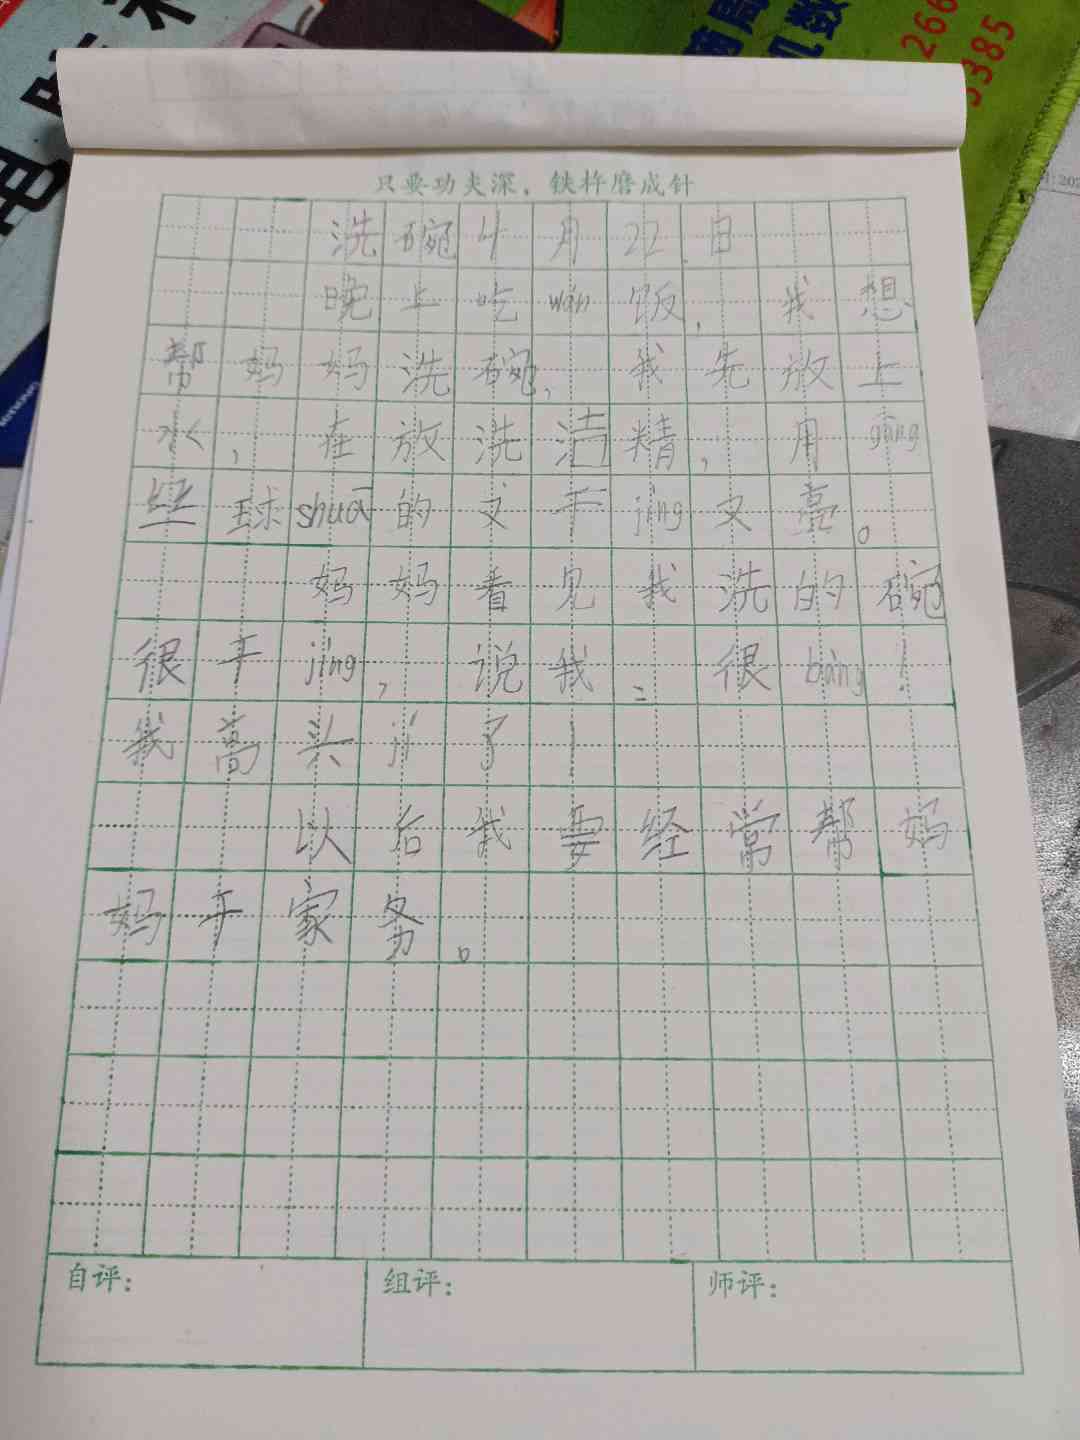 266
385
只要功夫深，铁杵磨成针
洗碗4月22日
晚上吃wán饭，我想
帮妈妈洗碗，我先放上
水，在放洗洁精，用gāng
丝球shuā的又干jìng又亮。
妈妈看见我洗的碗
很干jìng，说我：很bàng！
我高兴jí了！
以后我要经常帮妈
妈干家务。
自评：
组评：
师评：